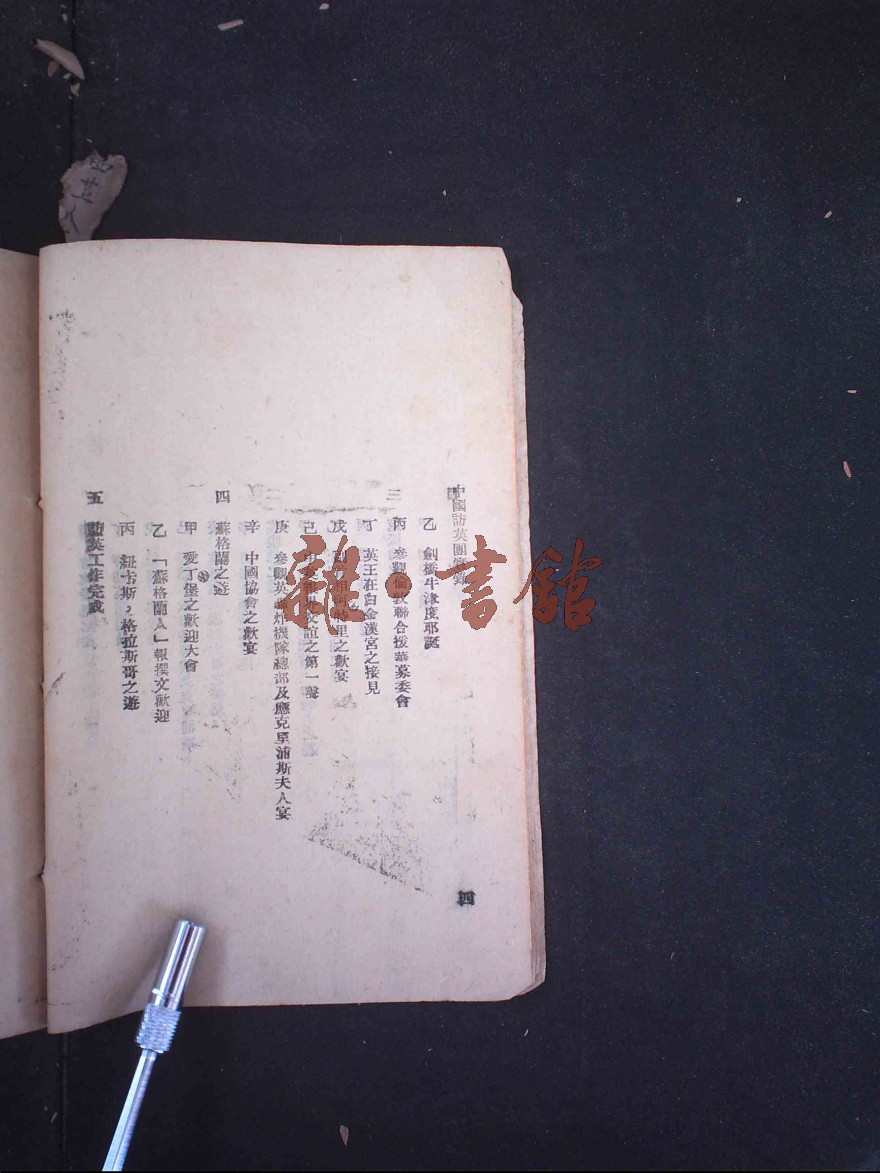 中國訪英團
乙 劍橋牛津度耶誕
三
丙 參觀倫敦聯合援華募委會
丁 英王在白金漢宮之接見
戊 里之歡宴
己 誼之第一聲
庚 參觀英 炸機隊總部及應克里浦斯夫人宴
辛 中國協會之歡宴
四 蘇格蘭之遊
甲 愛丁堡之歡迎大會
乙 「蘇格蘭人」報撰文歡迎
丙 紐卡斯,格拉斯哥之遊
五 訪英工作完成
四
雜·書館